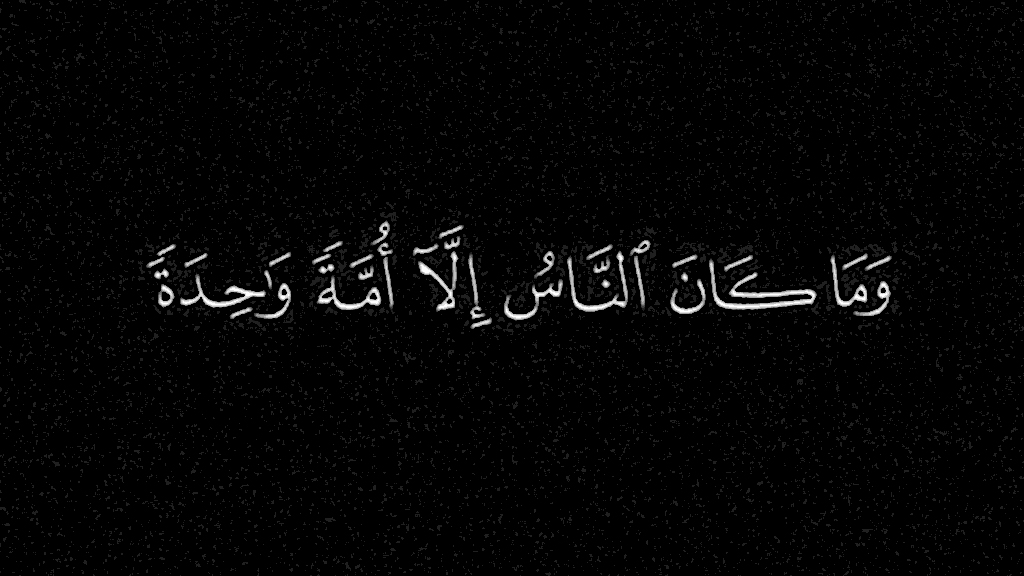 وَمَا كَانَ ٱلنَّاسُ إِلَّآ أُمَّةً وَٰحِدَةً